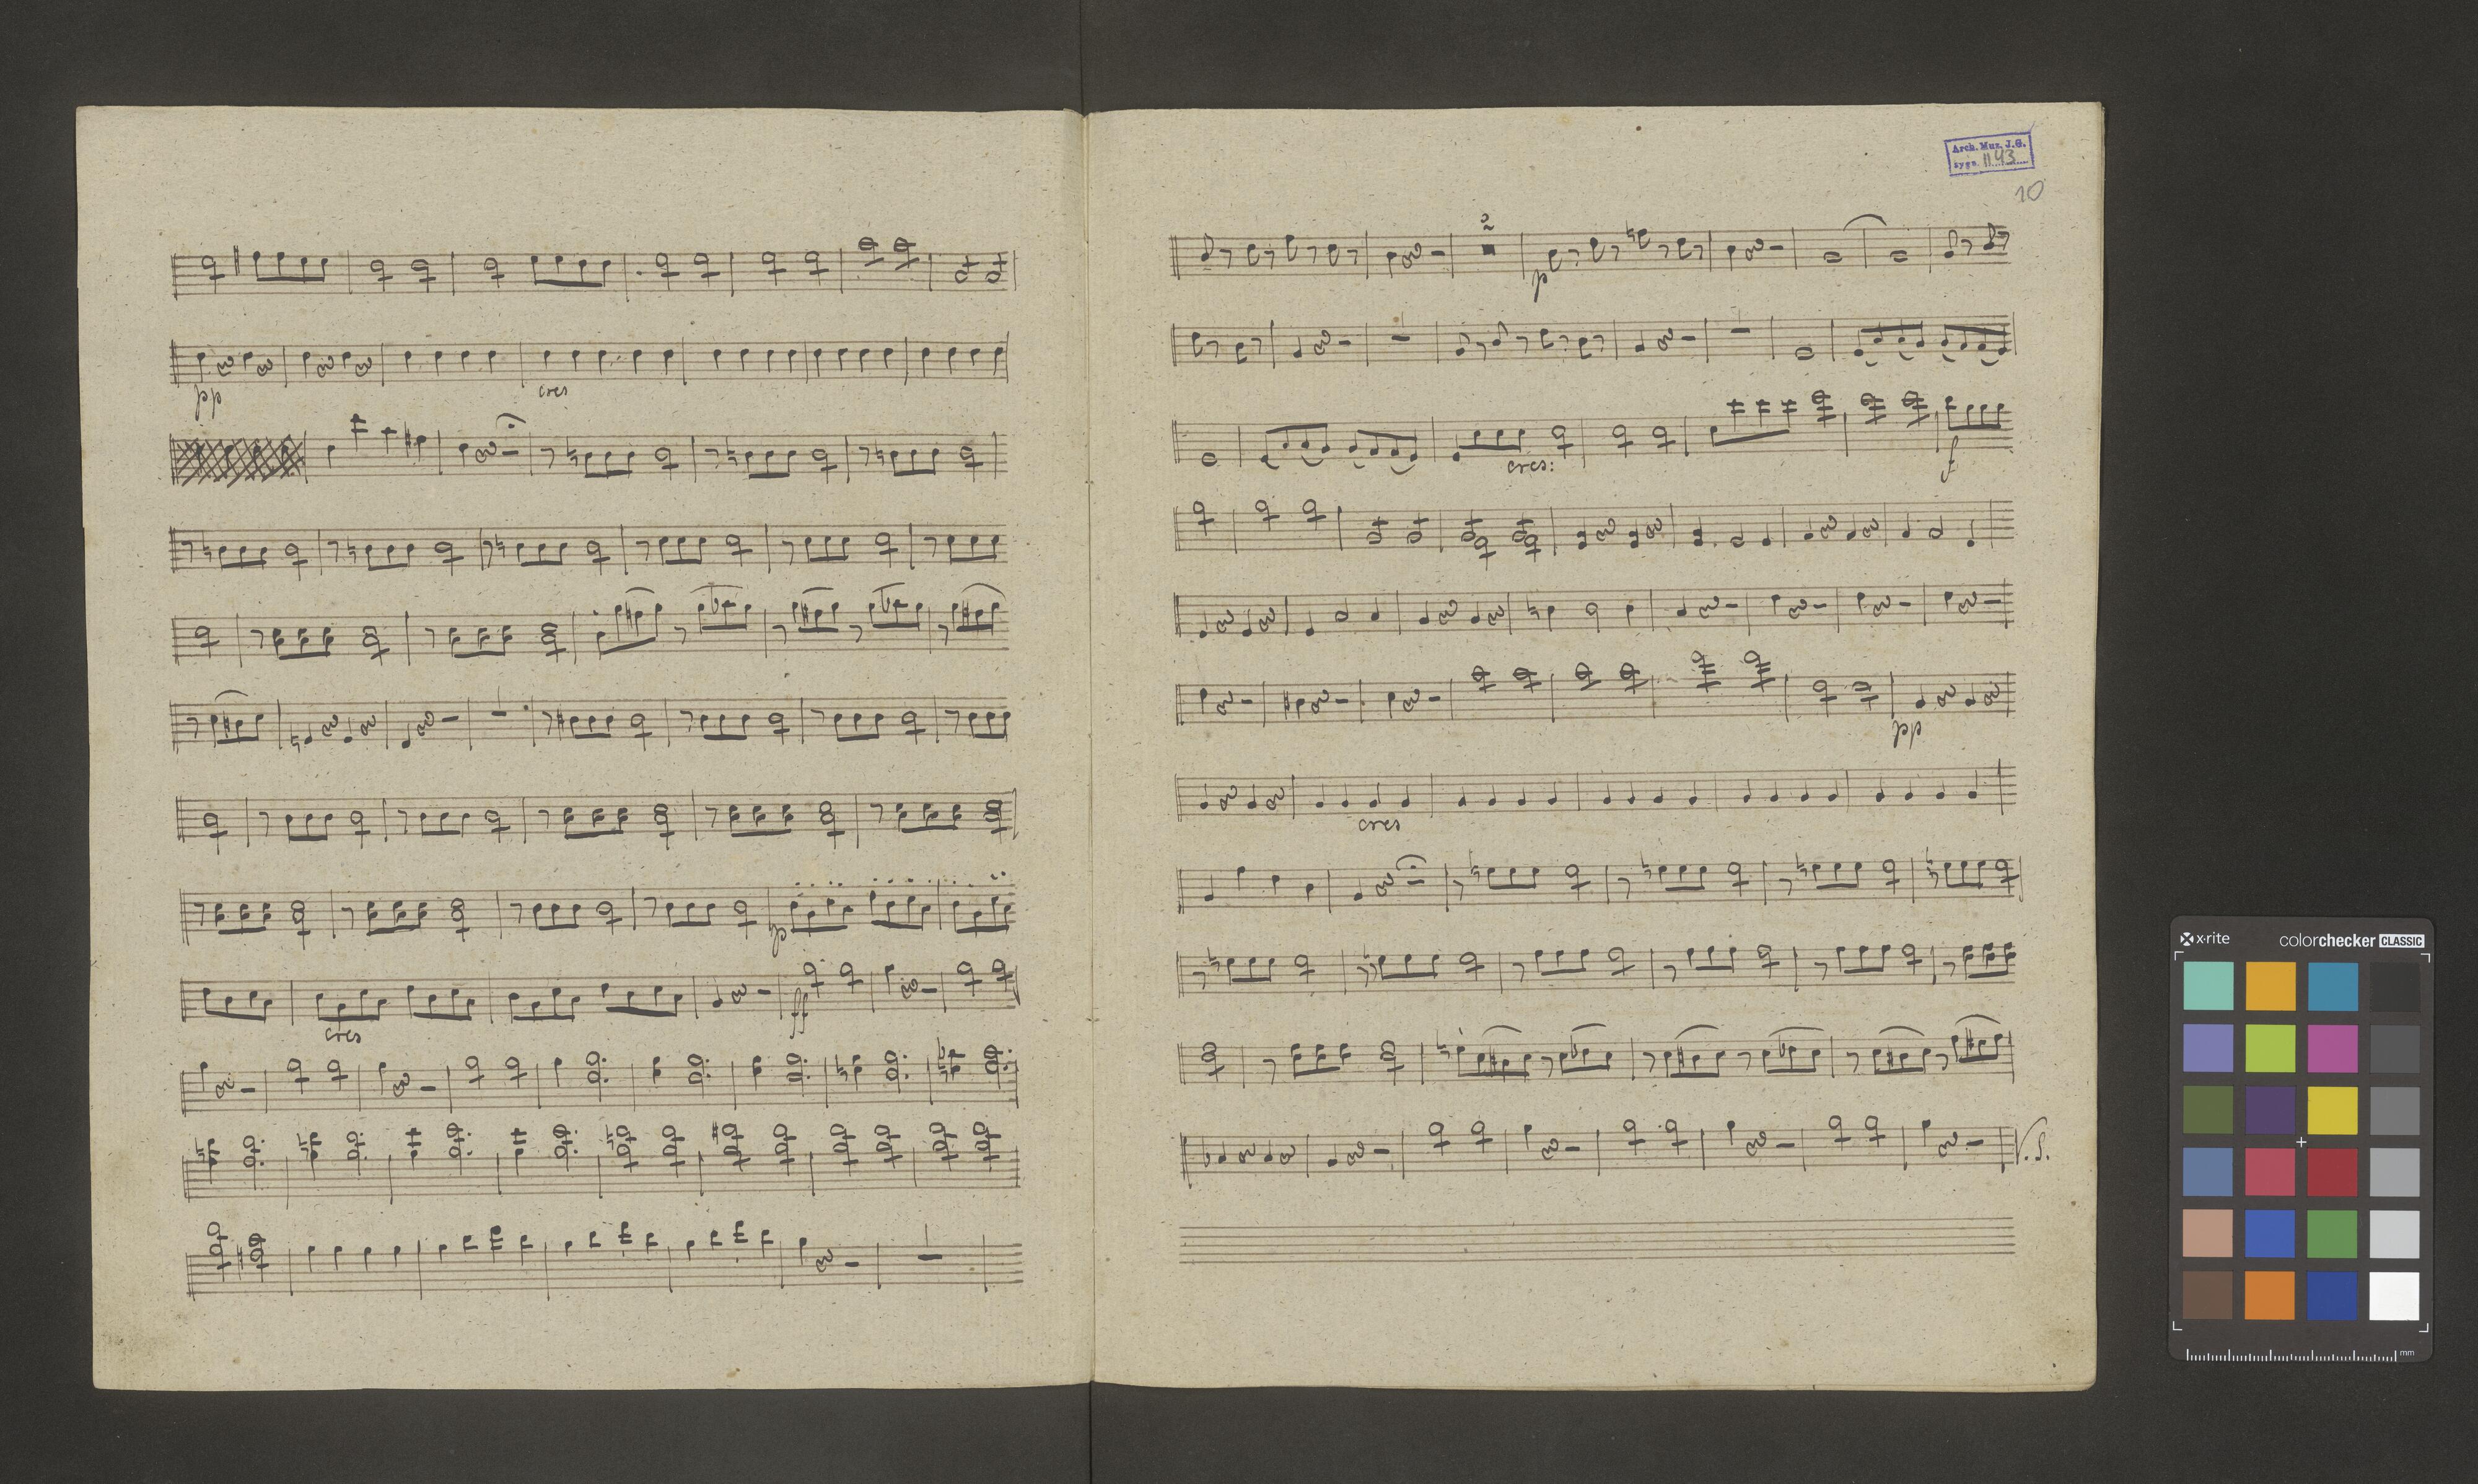 pp
cres
p
cres
ff
Arch. Muz. J.G.
sygn. 1143
10
2
p
cres:
f
pp
cres
V. S.
x-rite
colorchecker CLASSIC
mm